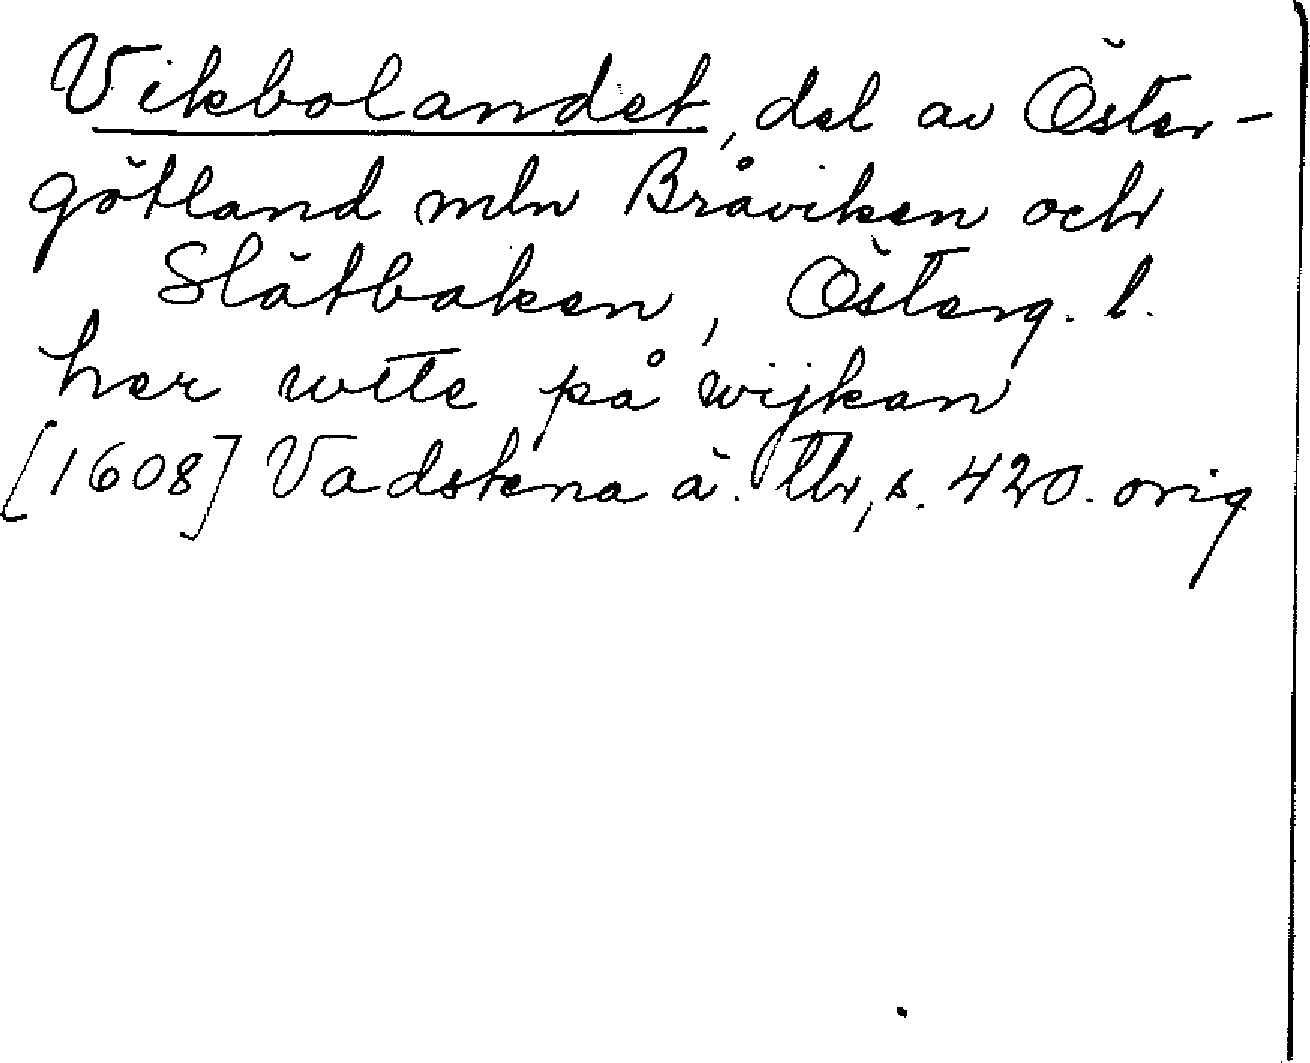 Vikbolandet, del av Öster-
götland mln Bråviken och
Slätbaken, Österg. l.
her wtte på wijkan
[1608] Vadstena ä. Tb, s. 420. orig